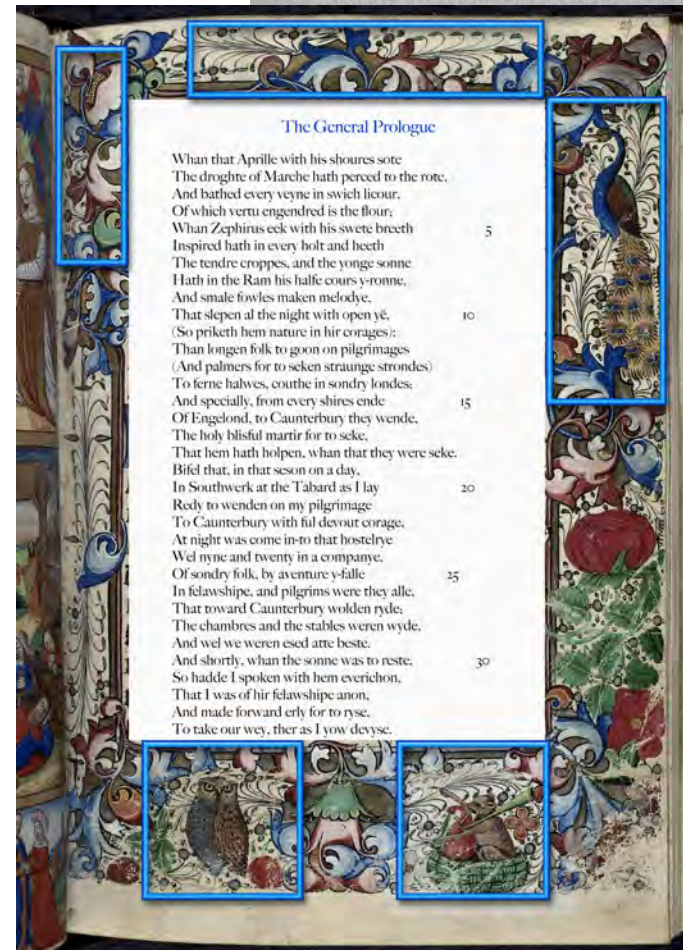 29
The General Prologue
Whan that Aprille with his shoures sote
The droghte of Marche hath perced to the rote,
And bathed every veyne in swich licour,
Of which vertu engendred is the flour;
Whan Zephirus eek with his swete breeth 5
Inspired hath in every holt and heeth
The tendre croppes, and the yonge sonne
Hath in the Ram his halfe cours y-ronne,
And smale fowles maken melodye,
That slepen al the night with open yë, 10
(So priketh hem nature in hir corages):
Than longen folk to goon on pilgrimages
(And palmers for to seken straunge strondes)
To ferne halwes, couthe in sondry londes;
And specially, from every shires ende 15
Of Engelond, to Caunterbury they wende,
The holy blisful martir for to seke,
That hem hath holpen, whan that they were seke.
Bifel that, in that seson on a day,
In Southwerk at the Tabard as I lay 20
Redy to wenden on my pilgrimage
To Caunterbury with ful devout corage,
At night was come in-to that hostelrye
Wel nyne and twenty in a companye,
Of sondry folk, by aventure y-falle 25
In felawshipe, and pilgrims were they alle,
That toward Caunterbury wolden ryde;
The chambres and the stables weren wyde,
And wel we weren esed atte beste.
And shortly, whan the sonne was to reste, 30
So hadde I spoken with hem everichon,
That I was of hir felawshipe anon,
And made forward erly for to ryse,
To take our wey, ther as I yow devyse.